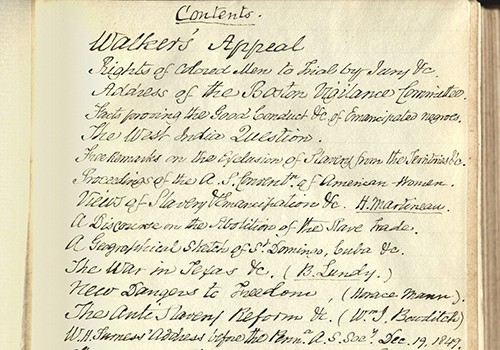 Contents.
Walker's Appeal
Rights of Colored Men to Trial by Jury &c.
Address of the Boston Vigilance Committee.
Facts proving the Good Conduct &c. of Emancipated negroes.
The West India Question.
Free Remarks on the exclusion of Slavery from the Territories &c.
Proceedings of the A. S. Conventn. of American Women.
Views of Slavery & Emancipation &c. H. Martineau.
A Discourse on the Abolition of the Slave Trade.
A Geographical Sketch of St. Domingo, Cuba &c.
The War in Texas &c. (B. Lundy.)
New Dangers to Freedom, (Horace Mann).
The Anti Slavery Reform &c. (Wm. I. Bowditch)
W. H. Furness' Address before the Penna. A. S. Socy. Dec. 19, 1849.